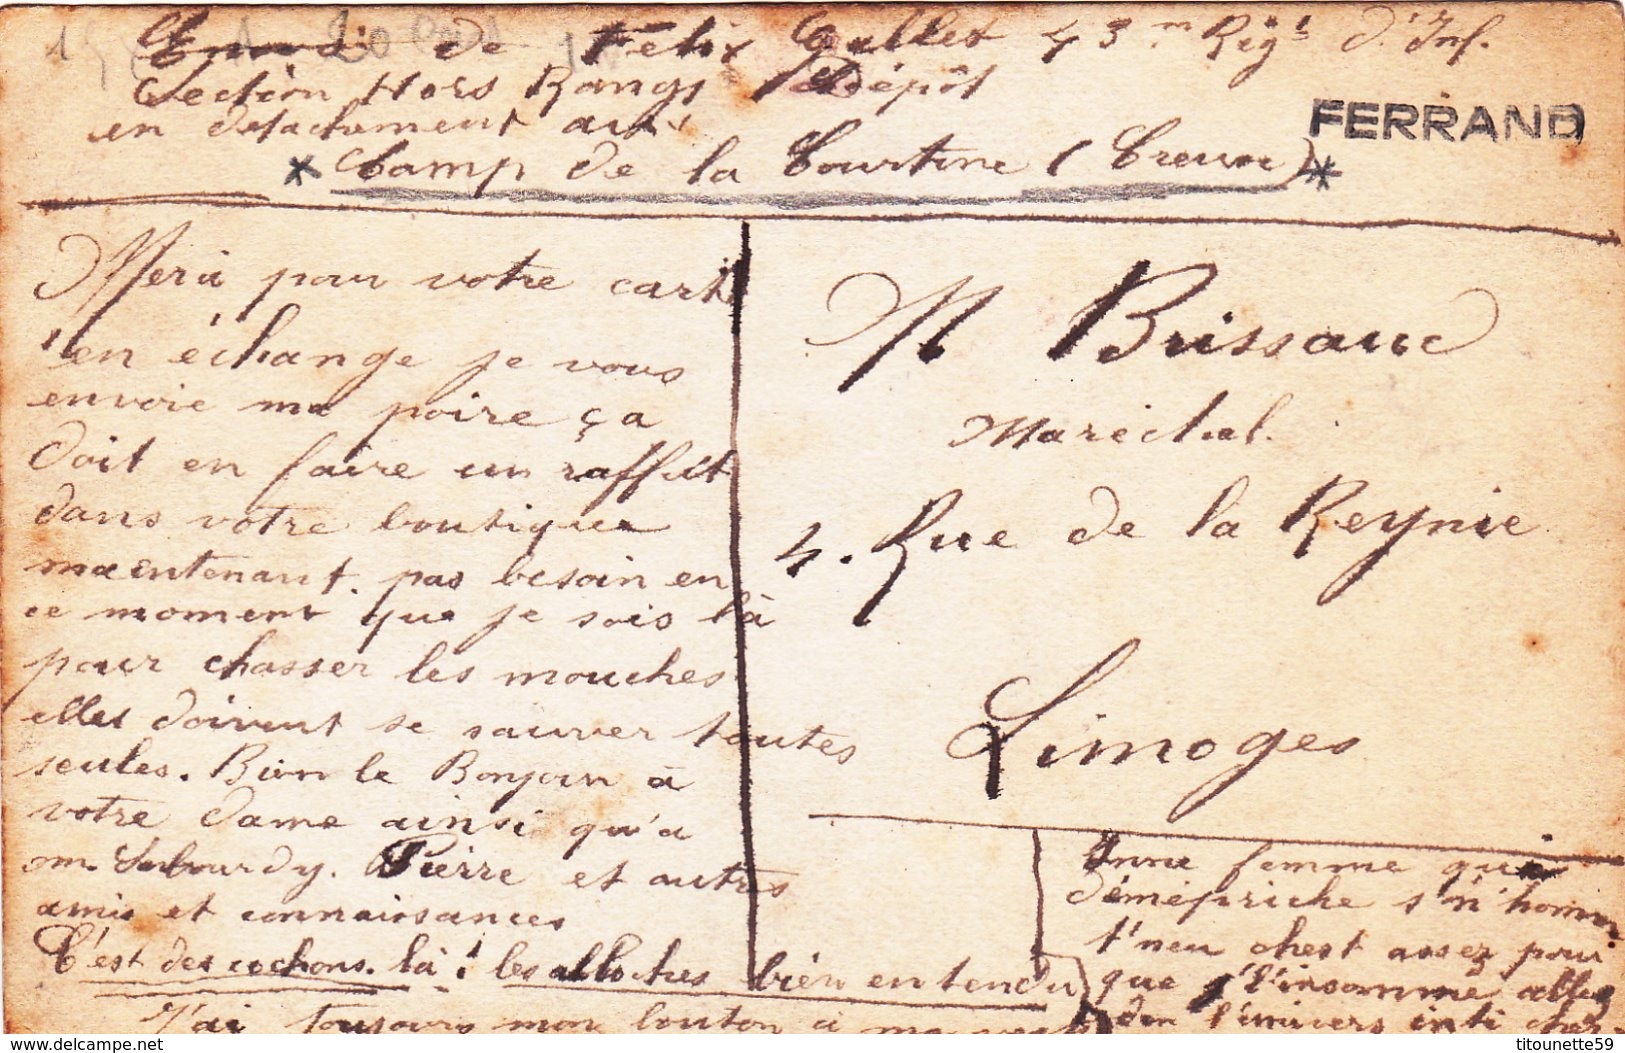 de Felix Gallet 43 m Regt d'Inf.
Section Hors Rangs Dépôt
en detachement au
FERRAND
Camp de la Courtine (Creuse)
Merci pour votre carte
en échange je vous
envoie ma poire ça
doit en faire un raffut
dans votre boutique
maentenant. pas besoin en
ce moment que je sois là
pour chasser les mouches
elles doivent se sauver toutes
seules. Bien le Bonjour à
votre dame ainsi qu'a
m. Sabourdy. Pierre et autres
amis et connaissances
C'est des cochons. là! les alloches bien entendu
J'ai toujours mon bouton à ma
M Brissaud
Maréchal.
4. Rue de la Reynie
Limoges
femme qui
t'neu chest assez pour
que
l'univers
titounette59